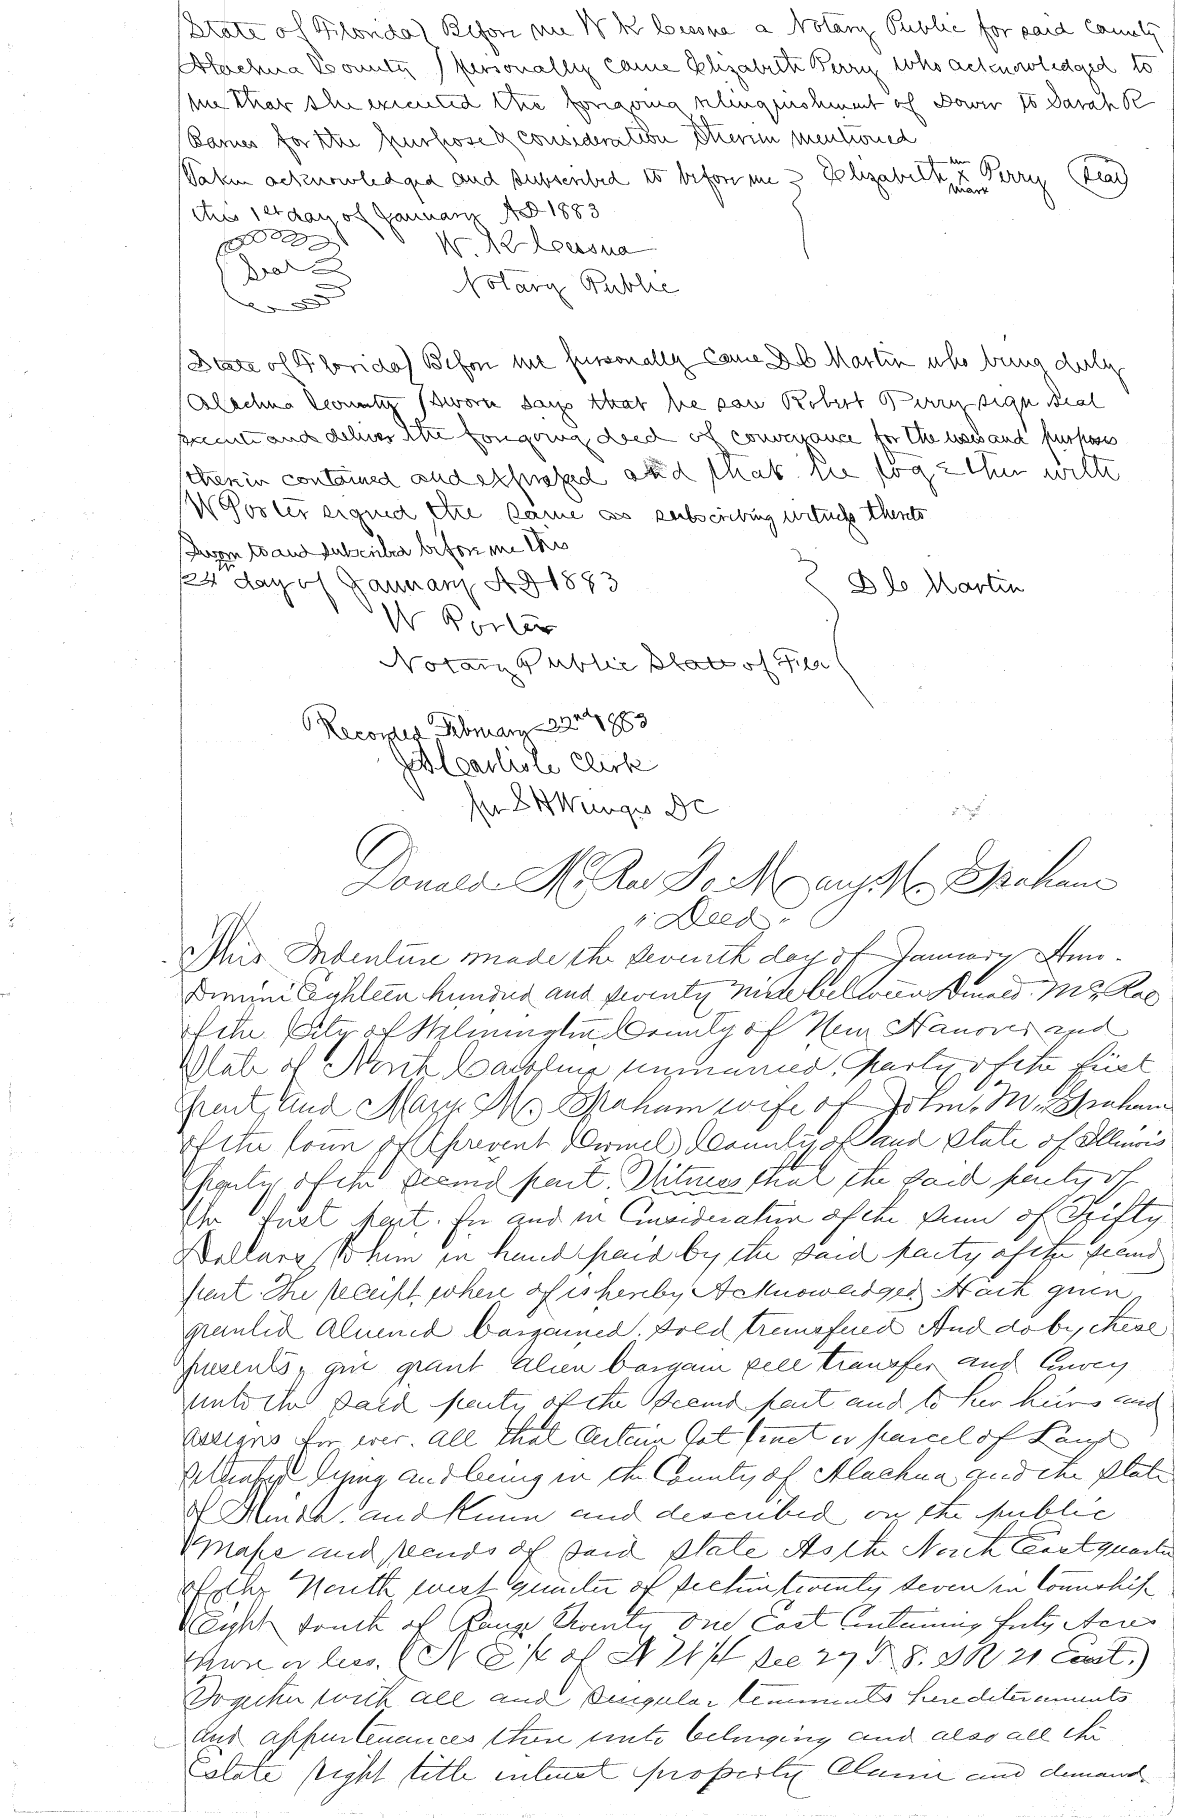 State of Florida) Before me W K Cessna a Notary Public for said County
Alachua County ) personally came Elizabeth Perry who acknowledged to
me that she executed the foregoing relinquishment of Dower to Sarah R
Barnes for the purpose & consideration therein mentioned
Taken acknowledged and subscribed to before me } Elizabeth her x mark Perry (Seal)
this 1st day of January AD 1883
W. K Cessna
(Seal)
Notary Public
State of Florida) Before me personally came D C Martin who being duly
Alachua County ) sworn says that he saw Robert Perry sign seal
execute and deliver the foregoing deed of conveyance for the uses and purposes
therein contained and expressed and that he together with
W Porter signed the same as subscribing witness thereto
Sworn to and subscribed before me this
24th day of January AD 1883 } D C Martin
W Porter
Notary Public State of Fla
Recorded February 22nd 1883
J A Carlisle Clerk
per S H Wienges DC
Donald McRae To Mary M. Graham
"Deed"
This Indenture made the seventh day of January Anno-
Domini Eighteen hundred and seventy nine between Donald McRae
of the City of Wilmington County of New Hanover and
State of North Carolina unmarried, party of the first
part, and Mary M. Graham wife of John. M. Graham
of the town of County of and State of Illinois
party of the second part. Witness that the said party of
the first part. for and in Consideration of the sum of Fifty
Dollars, to him in hand paid by the said party of the second
part The receipt where of is hereby Acknowledged Hath given
granted aliened bargained. sold transfered And do by these
presents, give grant alien bargain sell transfer and Convey
unto the said party of the second part and to her heirs and
assigns for ever. all that Certain lot tract or parcel of Land
situated lying and being in the County of Alachua and the State
of Florida. and Known and described on the public
maps and records of said State As the North East quarter
of the North west quarter of section twenty seven in township
Eight south of Range Twenty One East Containing forty Acres
more or less. (N E ¼ of N W ¼ Sec 27 T 8. S R 21 East.)
Together with all and singular tenements hereditaments
and appurtenances there unto belonging and also all the
Estate right title interest property Claim and demand